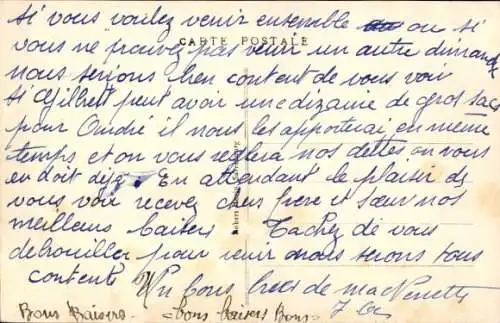 si vous voulez venir ensemble ou si
CARTE POSTALE
vous ne pouvez pas venir un autre dimanche
nous serions bien content de vous voir
si Gilbert peut avoir une dizaine de gros sacs
pour André il nous les apporterai en même
temps et on vous reglera nos dettes on vous
en doit déjà. En attendant le plaisir de
vous voir recevez cher frère et sœur nos
meilleurs baisers Tachez de vous
debrouiller pour venir nous serons tous
contents Un bons de ma
Bons Baisers - bons baisers Bons